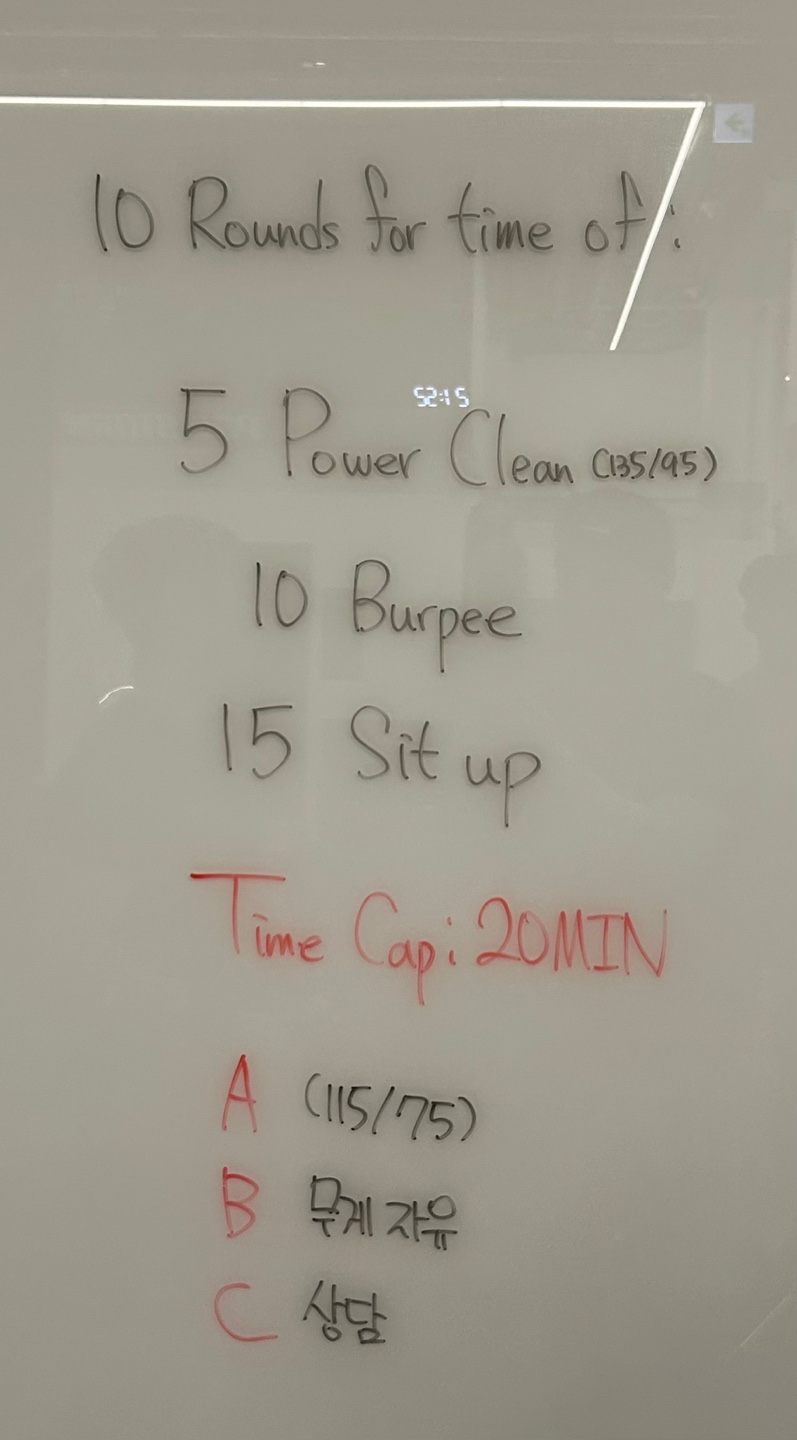 10 Rounds for time of:
52:15
5 Power Clean (135/95)
10 Burpee
15 Sit up
Time Cap: 20MIN
A (115/75)
B 무게 자유
C 상담